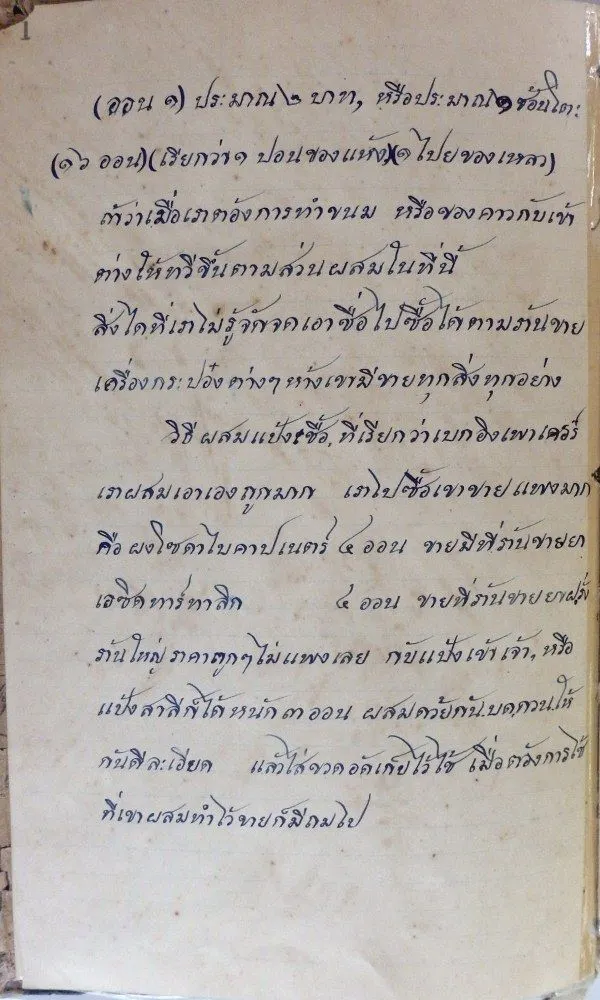 1
(ออน ๑) ประมาณ ๒ บาท, หรือประมาณ ๑ ช้อนโตะ
(๑๖ ออน) (เรียกว่า ๑ ปอนของแห้ง) (๑ ไปยของเหลว)
ถ้าว่าเมื่อเราต้องการทำขนม หรือของคาวกับเข้า
ต่างให้ทวีขึ้นตามส่วนผสมในที่นี้
สิ่งใดที่เราไม่รู้จักจดเอาชื่อไปซื้อได้ตามร้านขาย
เครื่องกระป๋องต่างๆ ห้างเขามีขายทุกสิ่งทุกอย่าง
วิธีผสมแป้งเชื้อ, ที่เรียกว่าเบกอิงเพาเดอร์
เราผสมเอาเองถูกมาก เราไปซื้อเขาขายแพงมาก
คือ ผงโซดาไบคาบเนตร์ ๔ ออน ขายมีที่ร้านขายยา
เอซิดทาร์ทาลิก ๔ ออน ขายที่ร้านขายยาฝรั่ง
ร้านใหญ่ ราคาถูกๆ ไม่แพงเลย กับแป้งเข้าเจ้า, หรือ
แป้งสาลีก็ได้ หนัก ๓ ออน ผสมด้วยกัน บด กวน ให้
กันดีละเอียด แล้วใส่ขวดอัดเก็บไว้ใช้ เมื่อต้องการใช้
ที่เขาผสมทำไว้ขายก็มีถมไป